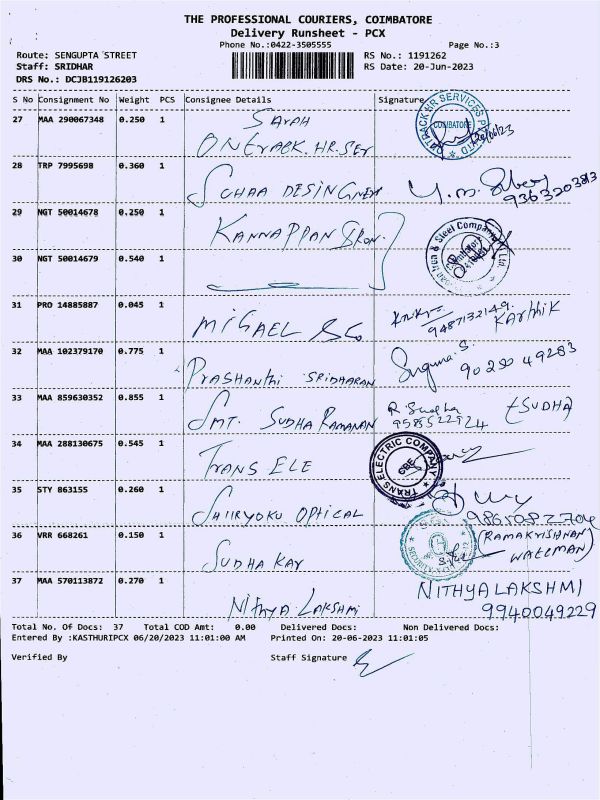 THE PROFESSIONAL COURIERS, COIMBATORE
Delivery Runsheet - PCX
Phone No.:0422-3505555
Page No.:3
Route: SENGUPTA STREET
RS No.: 1191262
Staff: SRIDHAR
RS Date: 20-Jun-2023
DRS No.: DCJB119126203
S No Consignment No Weight PCS Consignee Details Signature
27 MAA 290067348 0.250 1 SARAH
ONTRACK. HR. SER
COIMBATORE
28 TRP 7995698 0.360 1 SUHAA
29 NGT 50014678 0.250 1 KANNAPPAN IRON.
30 NGT 50014679 0.540 1
31 PRO 14885887 0.045 1 MICAEL & Co. 9487132149. KARTHIK
32 MAA 102379170 0.775 1 PRASHANTHI SRIDHARAN Suguna. S
33 MAA 859630352 0.855 1 SMT. SUDHA RAMANAN R. Sudha (SUDHA)
9585522924
34 MAA 288130675 0.545 1 TRANS ELE
TRANS ELECTRIC COMPANY
CBE
35 STY 863155 0.260 1 SHIRYOKU OPTICAL
36 VRR 668261 0.150 1 SUDHA KAY
(RAMAKRISHNAN
WATCMAN)
37 MAA 570113872 0.270 1 NITHYA LAKSHMI NITHYALAKSHMI
9940049229
Total No. Of Docs: 37 Total COD Amt: 0.00 Delivered Docs: Non Delivered Docs:
Entered By :KASTHURIPCX 06/20/2023 11:01:00 AM Printed On: 20-06-2023 11:01:05
Verified By Staff Signature